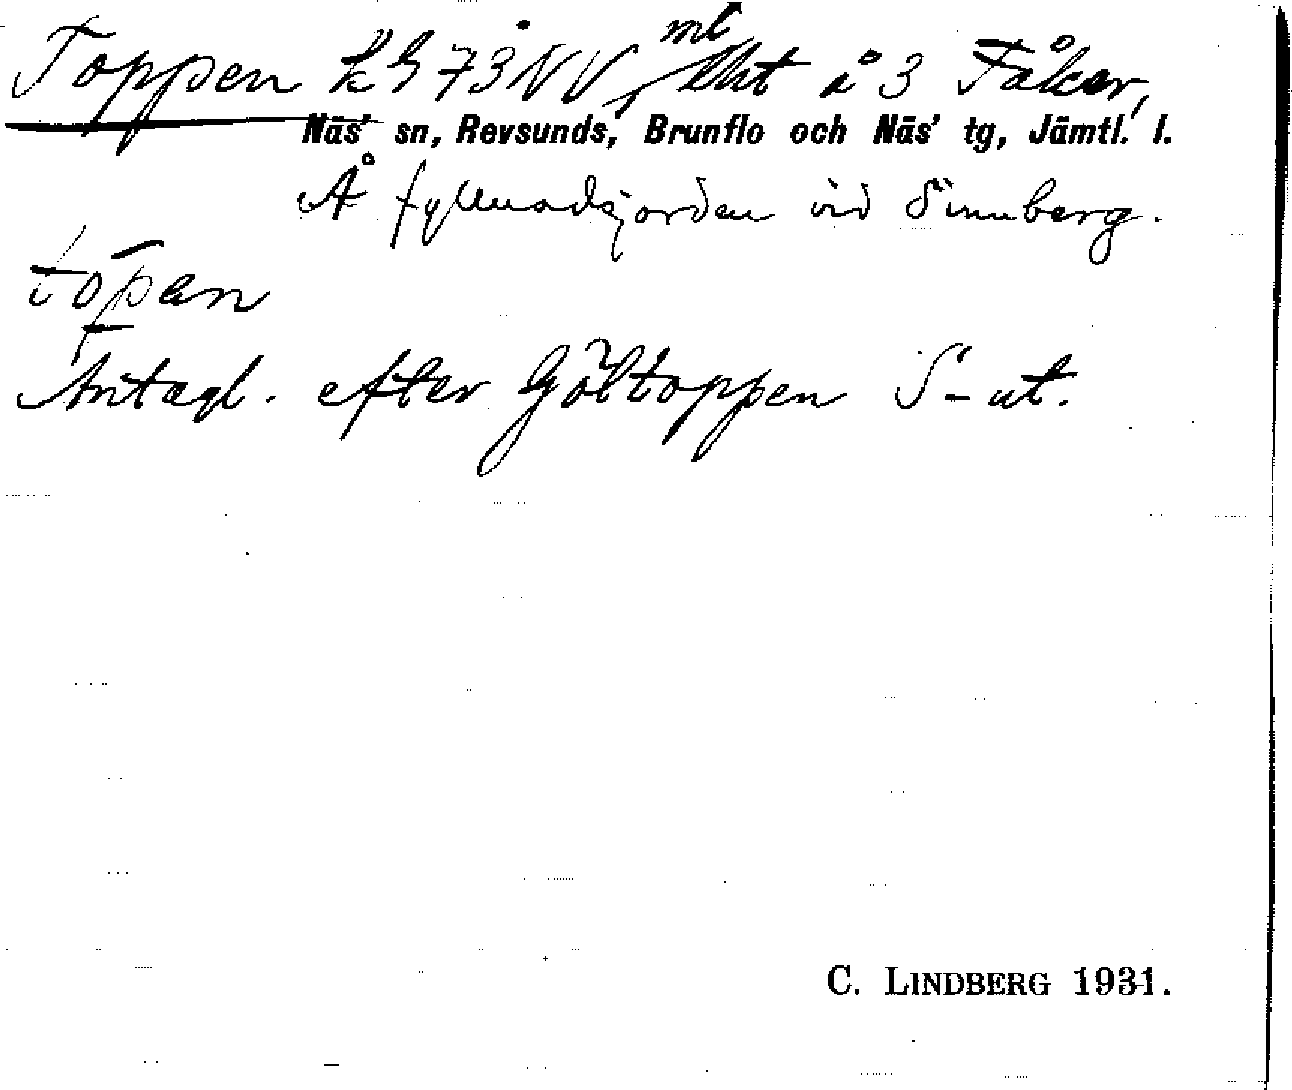 Toppen kh 73 NV, ml lht å 3 Fåker,
Näs' sn, Revsunds, Brunflo och Näs' tg, Jämtl. l.
Å fyllnadsjorden vid Sinnberg.
tòpen
Antagl. efter Göltoppen S-ut.
C. LINDBERG 1931.